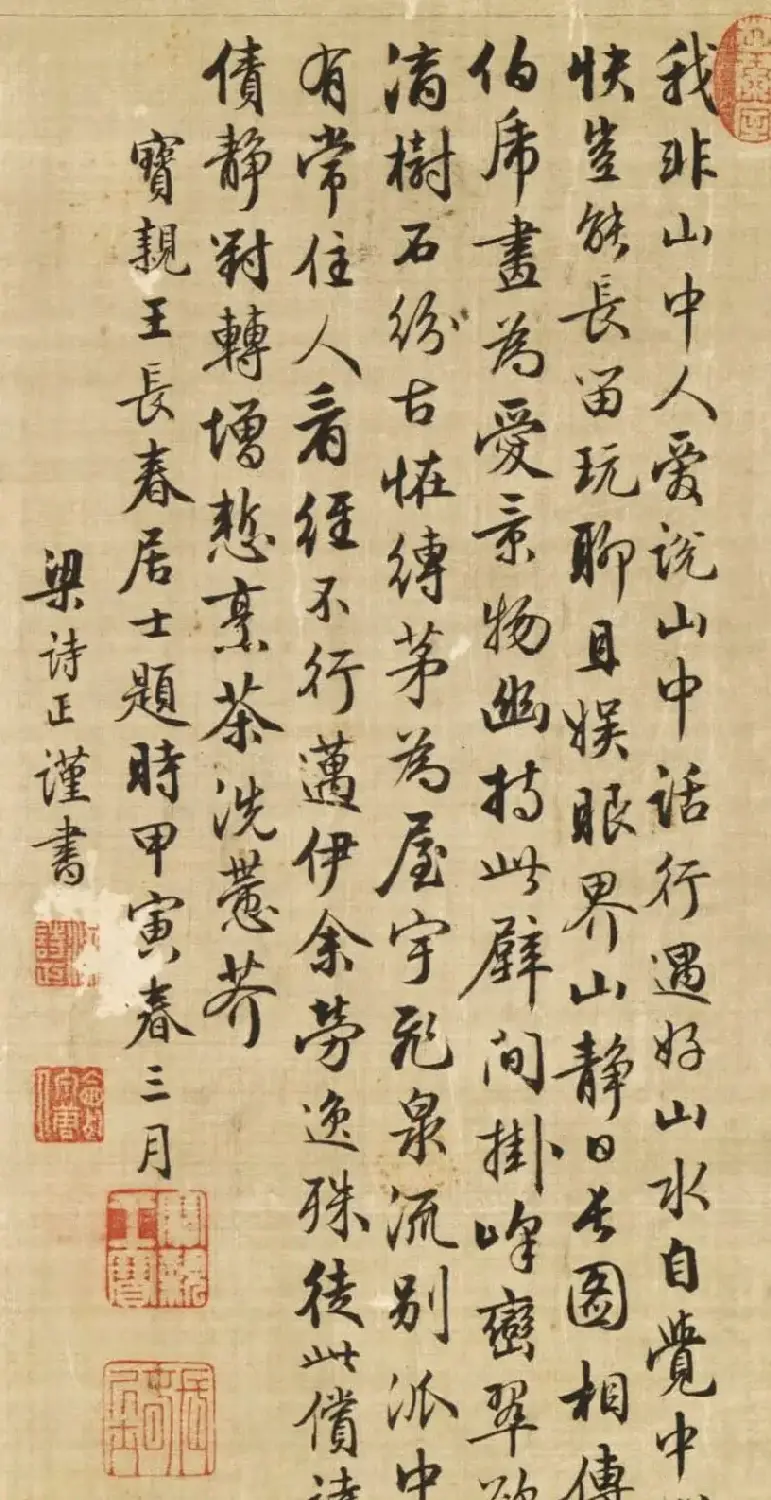 我非山中人愛說山中話行遇好山水自覺中
快豈能長留玩聊且娛眼界山靜日長圖相傳
伯虎畫為愛景物幽持此壁間掛峰巒翠欲
滴樹石紛古怪縛茅為屋宇飛泉流別派中
有常住人看經不行邁伊余勞逸殊徒此償詩
債靜對轉增慙烹茶洗蔕芥
寶親王長春居士題時甲寅春三月
梁詩正謹書
寶親王寶
長春居士